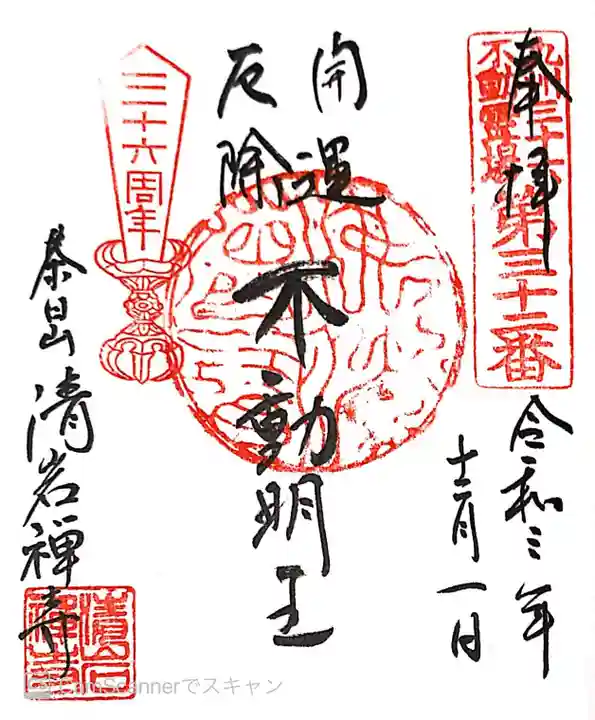 奉拝
九州三十六
不動霊場
第三十二番
令和三年
十二月一日
開運
厄除
不動明王
三十六周年
清岩禅寺
CamScannerでスキャン